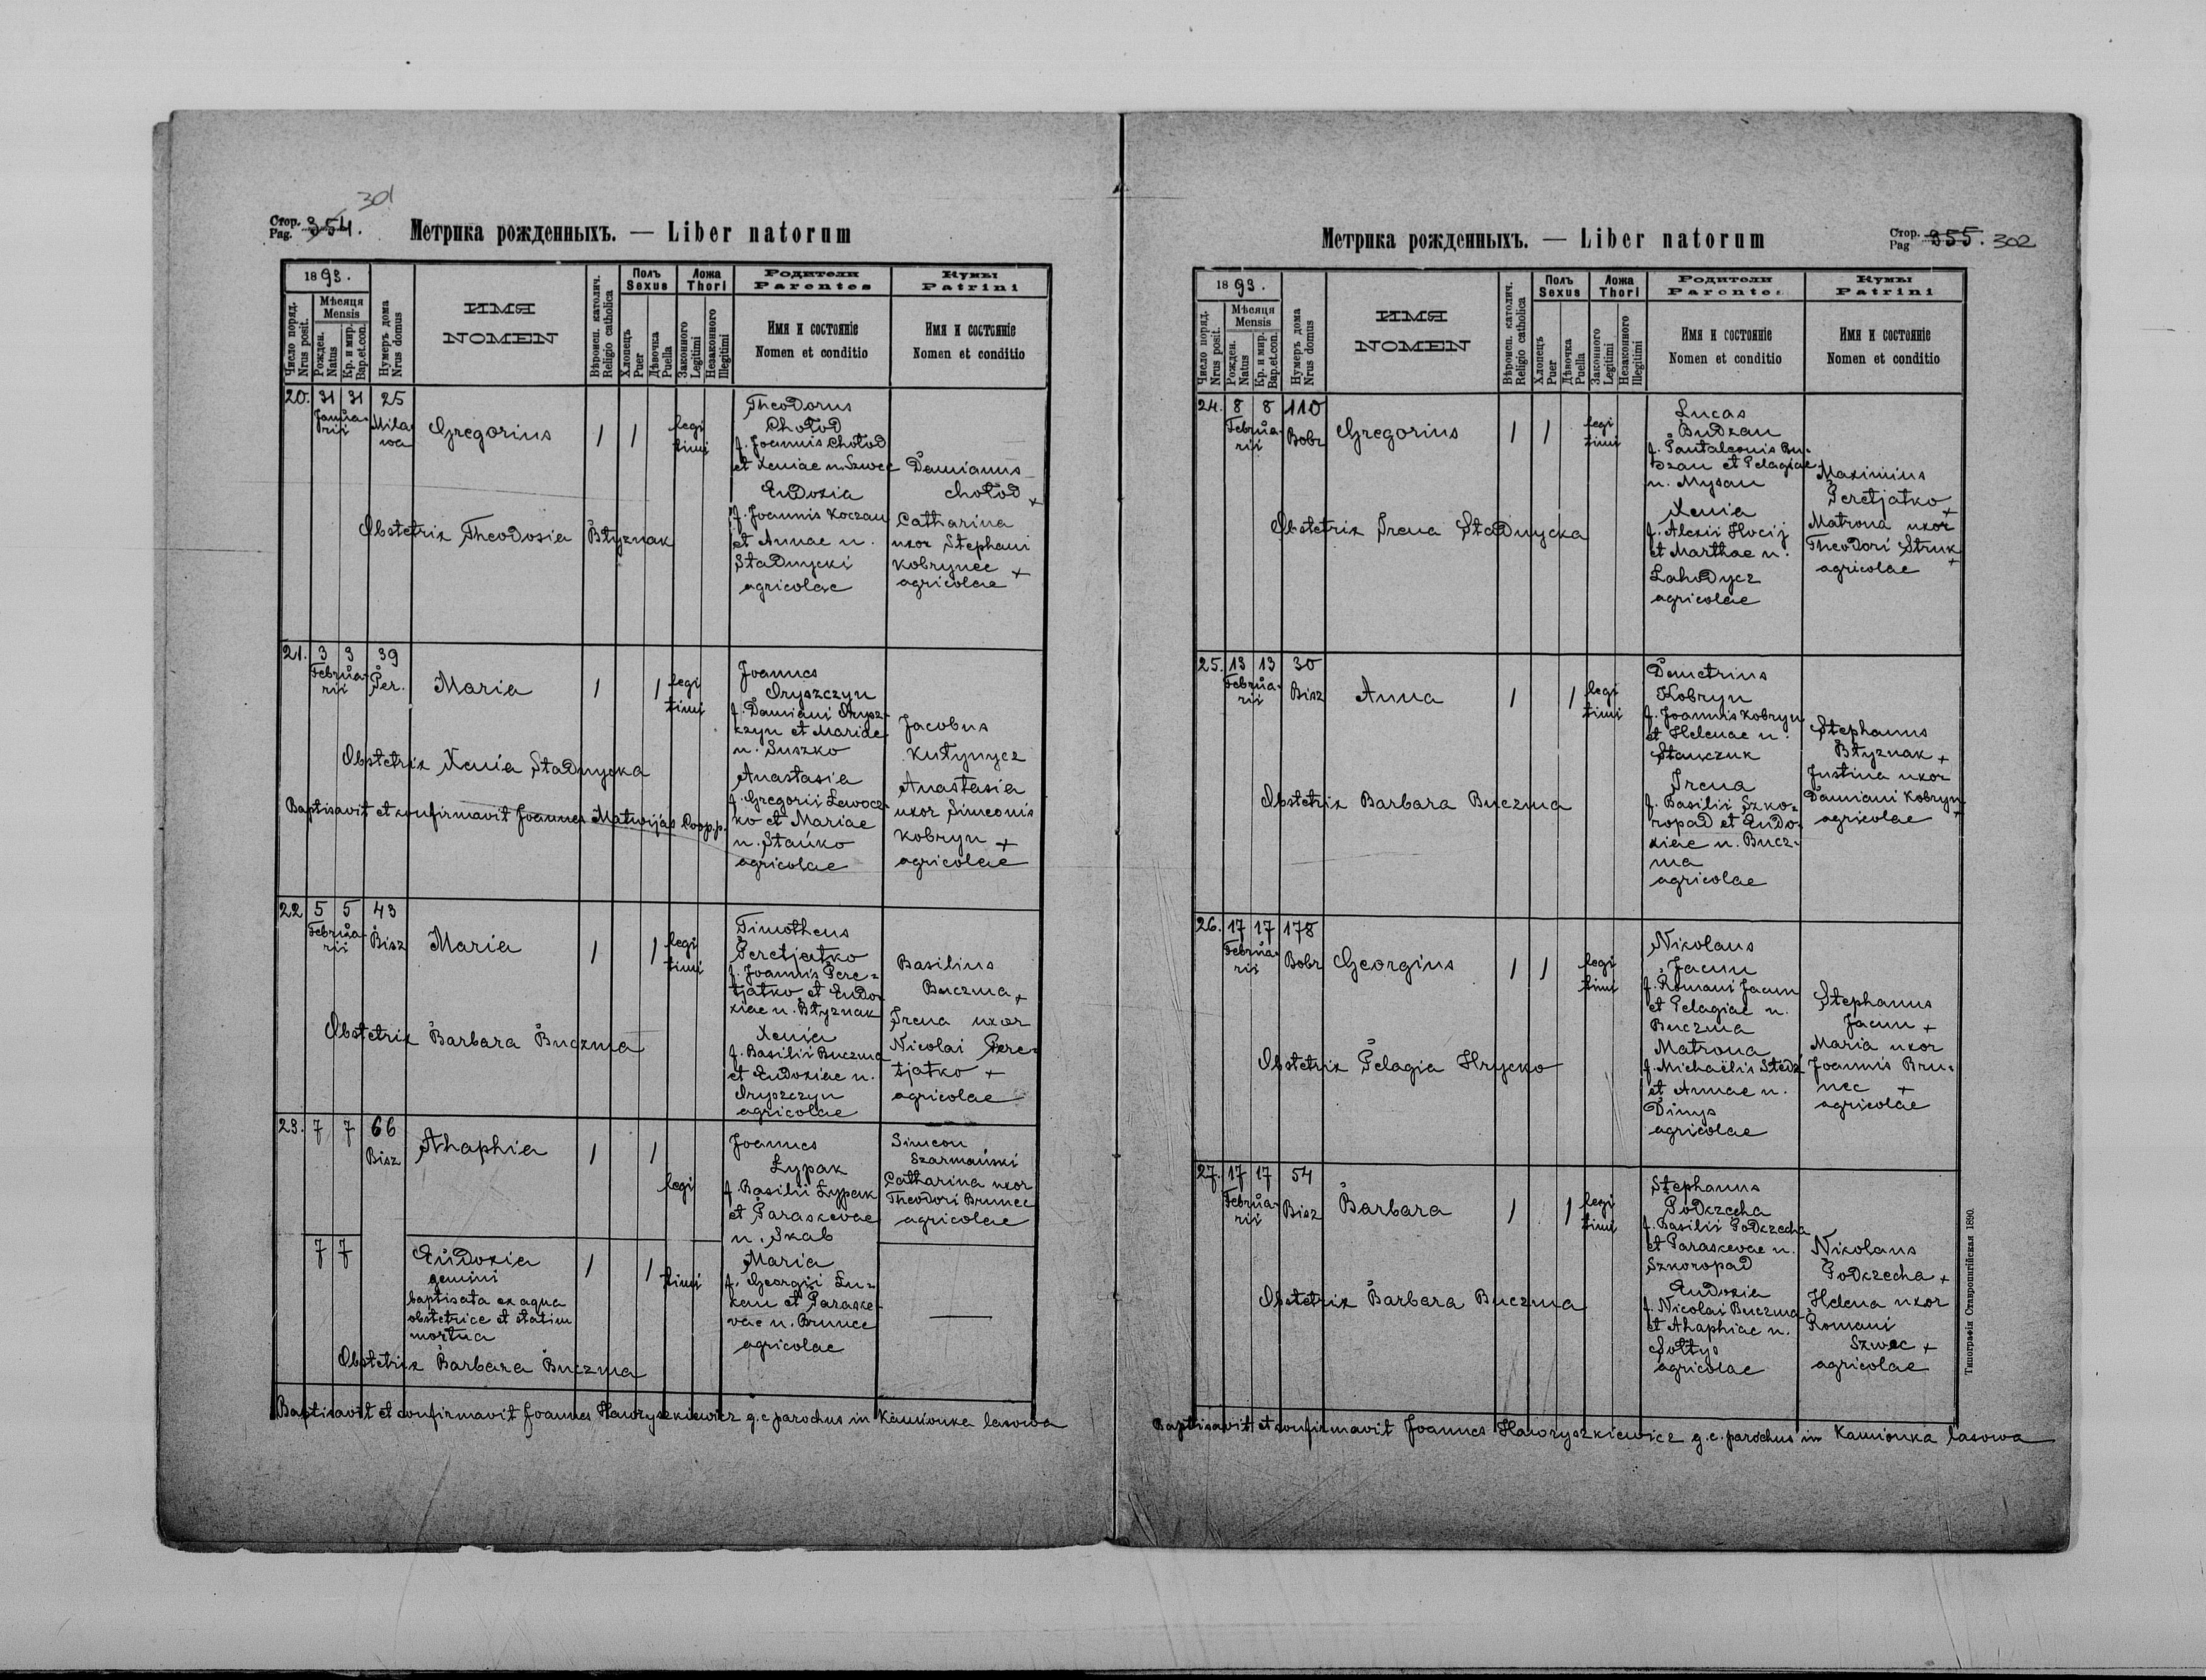 301
Стор. 354.
Pag.
Метрика рожденныхъ. — Liber natorum
1893.
Число поряд.
Nrus posit.
Мѣсяця
Mensis
Рожден.
Natus
Кр. и мир.
Bap.et.con.
Нумеръ дома
Nrus domus
ИМЯ
NOMEN
Вѣроисп. католич.
Religio catholica
Полъ
Sexus
Хлопецъ
Puer
Дѣвочка
Puella
Ложа
Thori
Законного
Legitimi
Незаконного
Illegitimi
Родители
Parentes
Имя и состоянiе
Nomen et conditio
Кумы
Patrini
Имя и состоянiе
Nomen et conditio
20. 31 31 25
Janua-
rii
Mila
wa
Gregorius
1 1
legi
timi
Theodorus
Chołod
f. Joannis Chołod
et Xeniae n. Szwec
Eudoxia
f. Joannis Koczan
et Annae n.
Stadnycki
agricolae
Damianus
Chołod +
Catharina
uxor Stephani
Kobrynec +
agricolae
Obstetrix Theodosia Błyznak
21. 3 3 39
Februa-
rii
Per.
Maria
1 1
legi
timi
Joannes
Oryszczyn
f. Damiani Orysz-
czyn et Mariae
n. Suszko
Anastasia
f. Gregorii Lewocz-
ko et Mariae
n. Stańko
agricolae
Jacobus
Kutynycz
Anastasia
uxor Simeonis
Kobryn +
agricolae
Obstetrix Xenia Stadnycka
Baptisavit et confirmavit Joannes Matwijas Coop.p.
22 5 5 43
Februa-
rii
Bisz
Maria
1 1
legi
timi
Timotheus
Peretjatko
f. Joannis Pere-
tjatko et Eudo-
xiae n. Błyznak
Xenia
f. Basilii Buczma
et Eudoxiae n.
Oryszczyn
agricolae
Basilius
Buczma +
Irena uxor
Nicolai Pere-
tjatko +
agricolae
Obstetrix Barbara Buczma
23. 7 7 66
Bisz
Ahaphia
1 1
legi
Joannes
Łypak
f. Basilii Łypak
et Paraskevae
n. Skab
Maria
f. Georgii Lu-
kan et Paraske-
vae n. Brunec
agricolae
Simeon
Szarmański
Catharina uxor
Theodori Brunec
agricolae
7 7
Eudoxia
gemini
baptisata ex aqua
obstetrice et statim
mortua
1 1
timi
Obstetrix Barbara Buczma
Baptisavit et confirmavit Joannes Hawryszkiewicz g.c. parochus in Kamionka lasowa
Метрика рожденныхъ. — Liber natorum
Стор. 355. 302
Pag
1893.
Число поряд.
Nrus posit.
Мѣсяця
Mensis
Рожден.
Natus
Кр. и мир.
Bap.et.con.
Нумеръ дома
Nrus domus
ИМЯ
NOMEN
Вѣроисп. католич.
Religio catholica
Полъ
Sexus
Хлопецъ
Puer
Дѣвочка
Puella
Ложа
Thori
Законного
Legitimi
Незаконного
Illegitimi
Родители
Parentes
Имя и состоянiе
Nomen et conditio
Кумы
Patrini
Имя и состоянiе
Nomen et conditio
24. 8 8 110
Februa-
rii
Bobr
Gregorius
1 1
legi
timi
Lucas
Budzan
f. Pantaleonis Bu-
dzan et Pelagiae
n. Mysan
Xenia
f. Alexii Hocij
et Marthae n.
Lahodycz
agricolae
Maximius
Peretjatko +
Matrona uxor
Theodori Struk +
agricolae
Obstetrix Irena Stadnycka
25. 13 13 30
Februa-
rii
Bisz
Anna
1 1
legi
timi
Demetrius
Kobryn
f. Joannis Kobryn
et Helenae n.
Stanczuk
Irena
f. Basilii Szko-
ropad et Eudo-
xiae n. Bucz-
ma
agricolae
Stephanus
Błyznak +
Justina uxor
Damiani Kobryn +
agricolae
Obstetrix Barbara Buczma
26. 17 17 178
Februa-
rii
Bobr
Georgius
1 1
legi
timi
Nikolaus
Jacun
f. Romani Jacun
et Pelagiae n.
Buczma
Matrona
f. Michaëlis
et Annae n.
Dinys
agricolae
Stephanus
Jacun +
Maria uxor
Joannis Bru-
nec +
agricolae
Obstetrix Pelagia Hrycko
27. 17 17 54
Februa-
rii
Bisz
Barbara
1 1
legi
timi
Stephanus
Podkzecha
f. Basilii Podkzecha
et Paraskevae n.
Szkoropad
Eudoxia
f. Nicolai Buczma
et Ahaphiae n.
Sołtys
agricolae
Nikolaus
Podkzecha +
Helena uxor
Romani
Szwec +
agricolae
Obstetrix Barbara Buczma
Baptisavit et confirmavit Joannes Hawryszkiewicz g.c. parochus in Kamionka lasowa
Типографія Ставропигійская 1890.